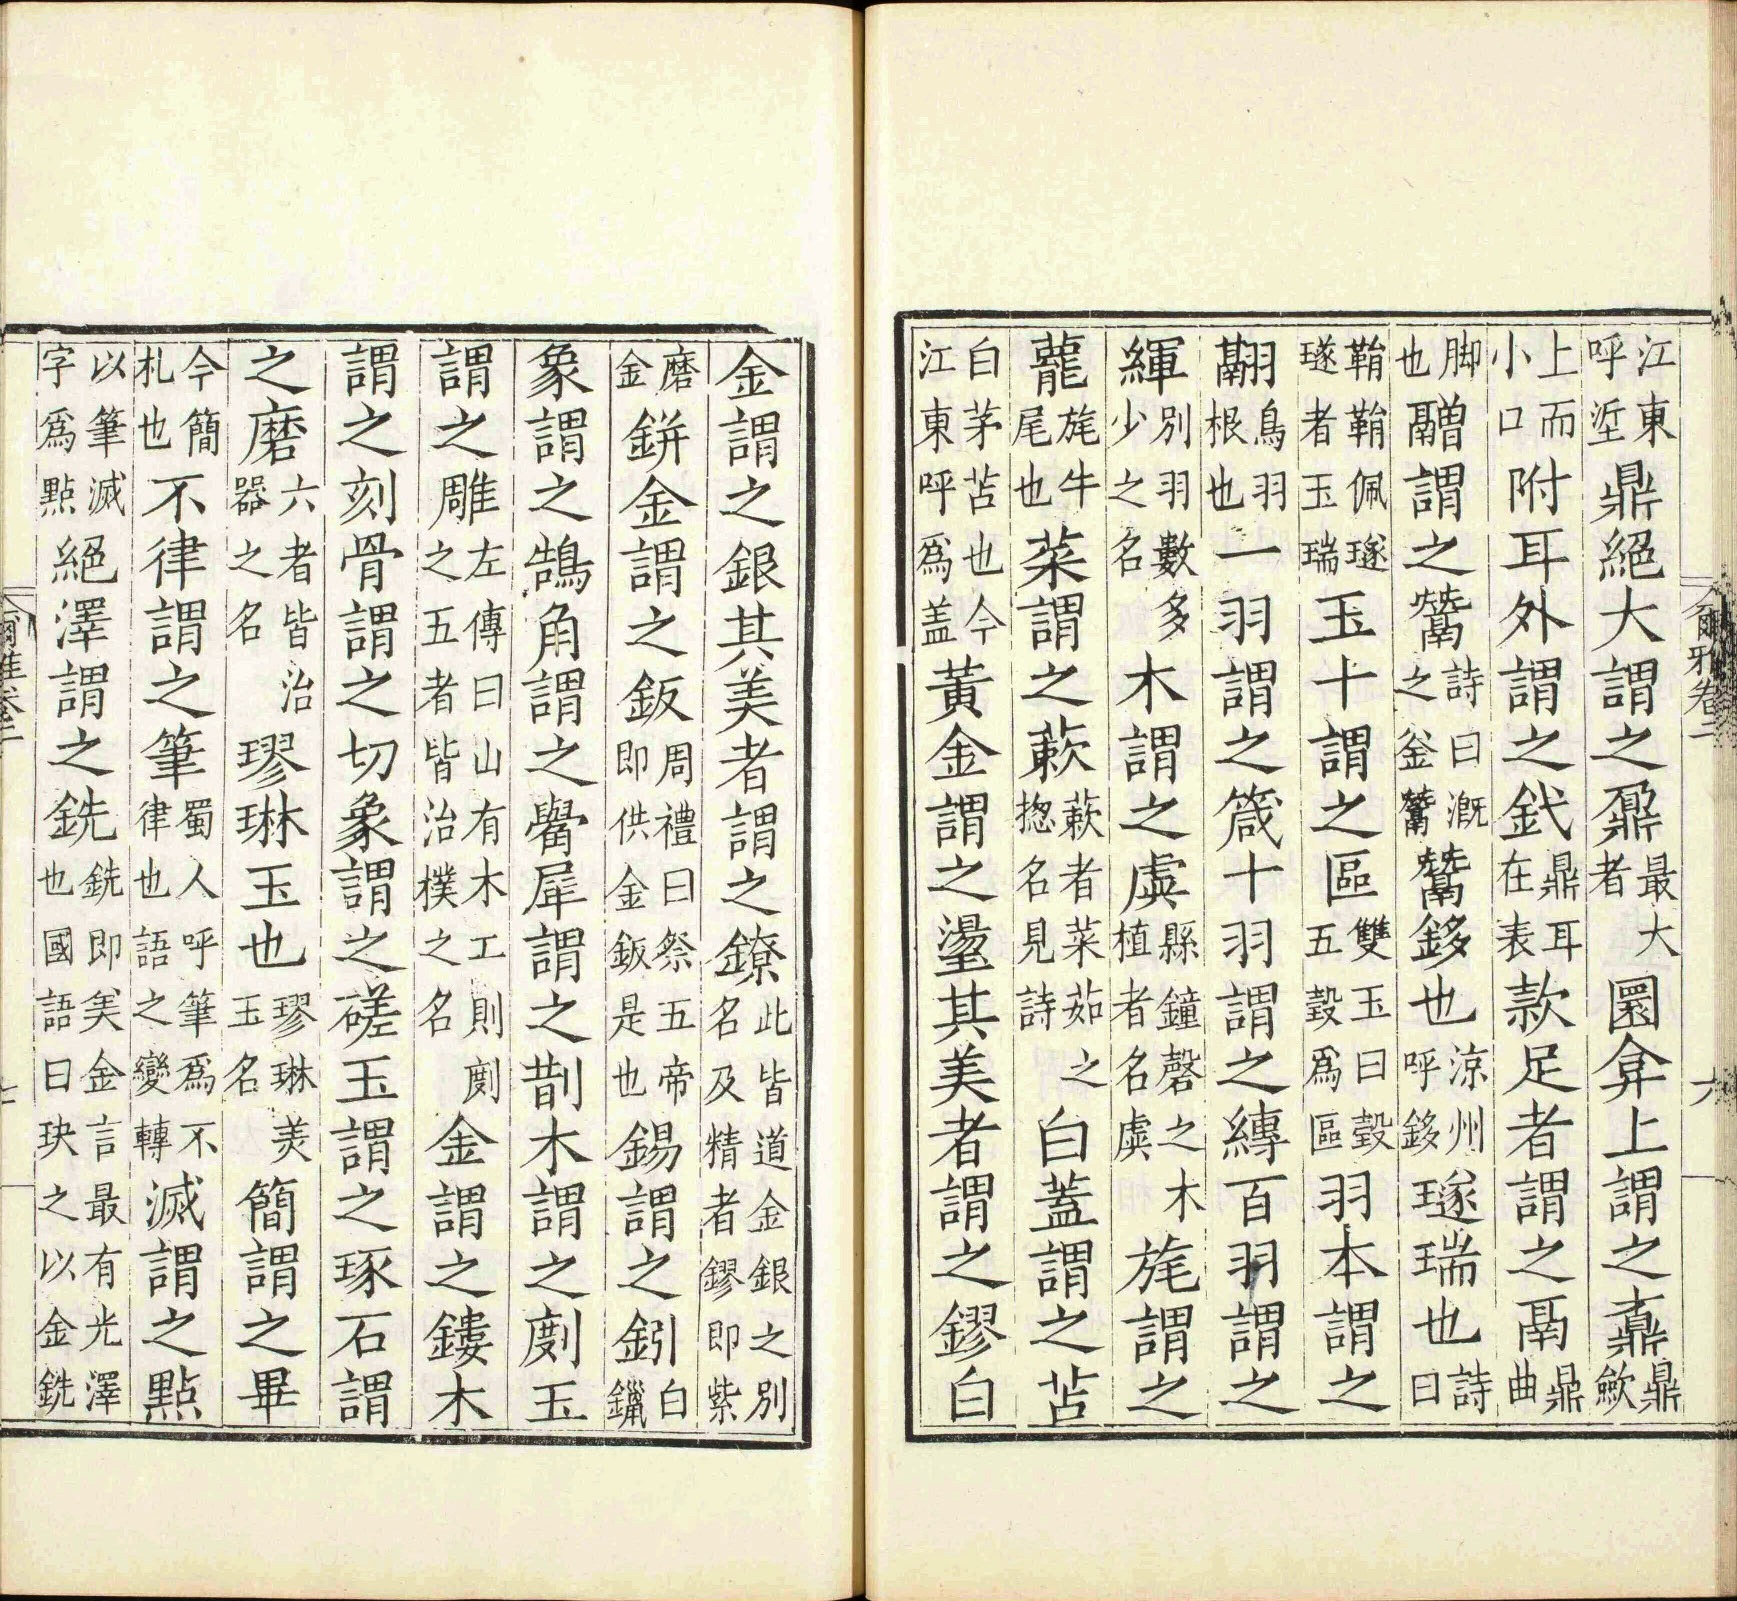 爾雅卷二　六
江東呼垽鼎絕大謂之鼐最大者圜弇上謂之鼒鼎歛
上而小口附耳外謂之釴鼎耳在表款足者謂之鬲鼎曲
脚也䰝謂之鬵詩曰溉之釜鬵鬵鉹也涼州呼鉹璲瑞也詩曰
鞙鞙佩璲璲者玉瑞玉十謂之區雙玉曰瑴五瑴爲區羽本謂之
翮鳥羽根也一羽謂之箴十羽謂之縳百羽謂之
緷別羽數多少之名木謂之虡縣鐘磬之木植者名虡旄謂之
蘢旄牛尾也菜謂之蔌蔌者菜茹之揔名見詩白蓋謂之苫
白茅苫也今江東呼爲盖黃金謂之璗其美者謂之鏐白
金謂之銀其美者謂之鐐此皆道金銀之別名及精者鏐即紫
磨金鉼金謂之鈑周禮曰祭五帝即供金鈑是也錫謂之鈏白鑞
象謂之鵠角謂之觷犀謂之剒木謂之剫玉
謂之雕左傳曰山有木工則剫之五者皆治樸之名金謂之鏤木
謂之刻骨謂之切象謂之磋玉謂之琢石謂
之磨六者皆治器之名璆琳玉也璆琳美玉名簡謂之畢
今簡札也不律謂之筆蜀人呼筆爲不律也語之變轉滅謂之點
以筆滅字爲點絕澤謂之銑銑即美金言最有光澤也國語曰玦之以金銑
爾雅卷二　七